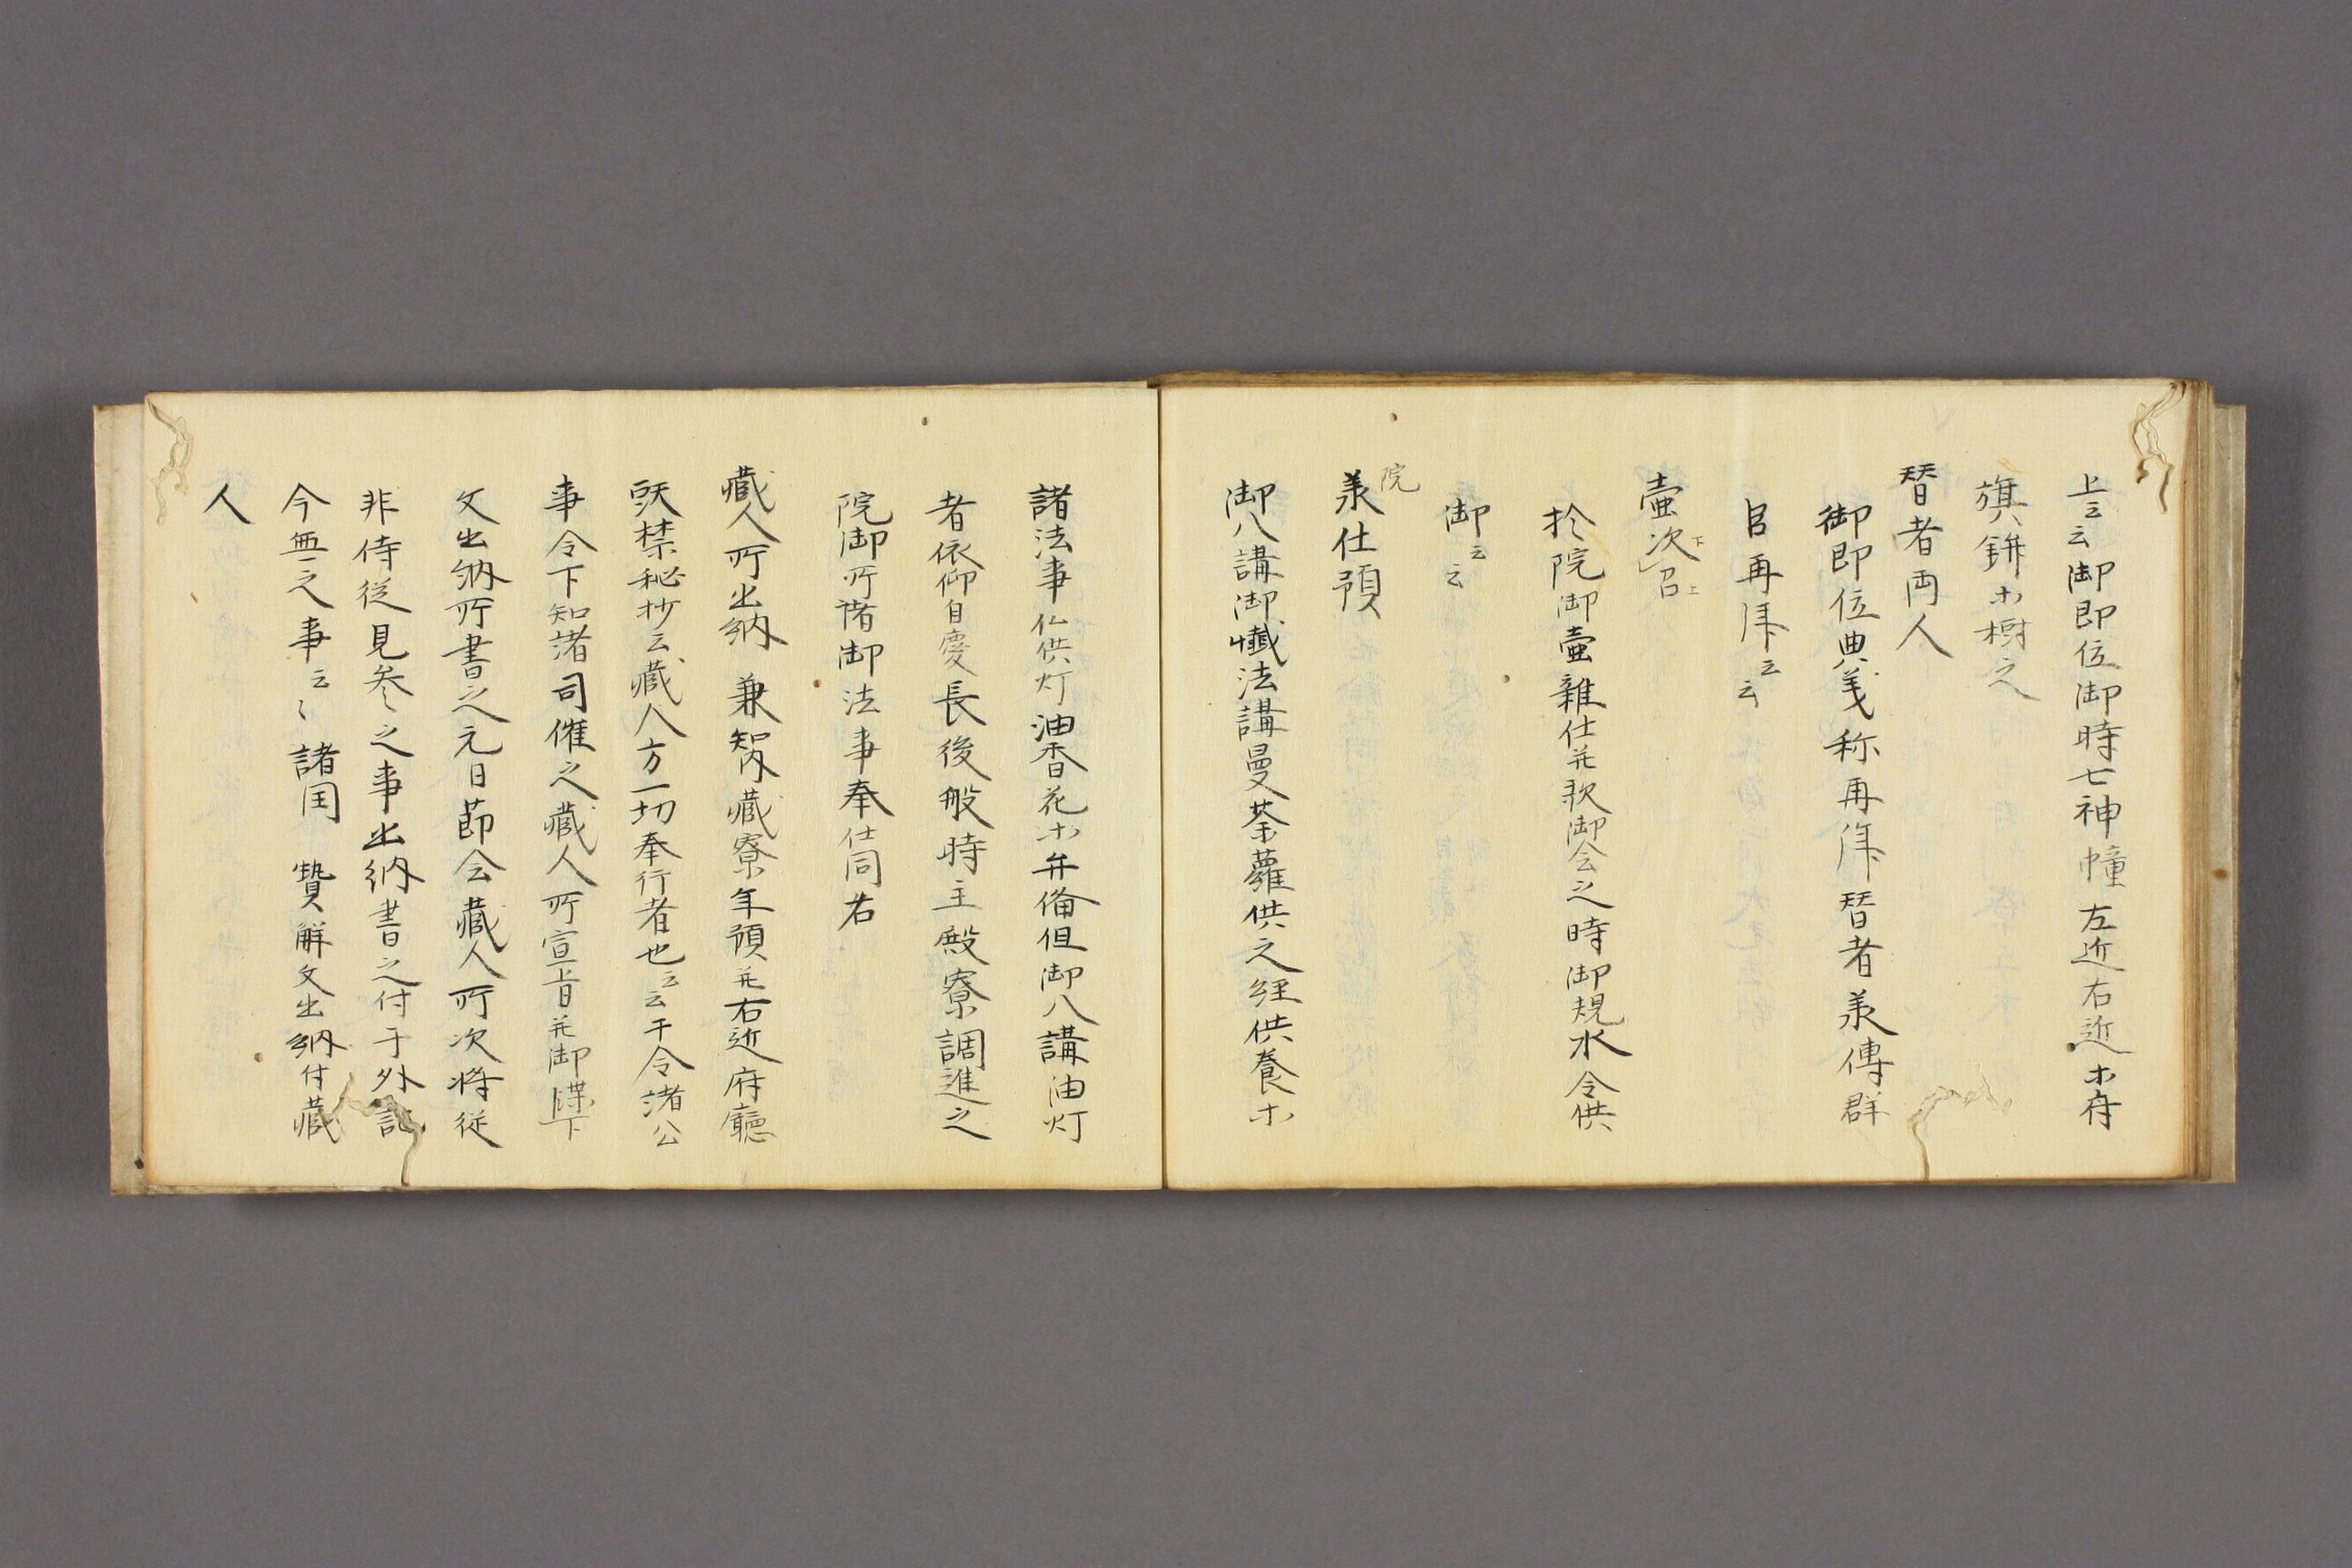 上云云御即位御時七神幢左近右近ホ府
旗鉾ホ樹之
賛者両人
御即位典義称再拝賛者羕傳群
臣再拝云云
壷次召
於院御壷雑仕并歌御会之時御硯水令供
御云云
院
羕仕預
御八講御懴法講曼荼羅供之経供養ホ
諸法事仏供灯油香花ホ弁備但御八講油灯
者依仰自慶長後般時主殿寮調進之
院御所諸御法事奉仕同右
蔵人所出納 兼内蔵寮年預并右近府廳
頭禁秘抄云蔵人方一切奉行者也云云干今諸公
事令下知諸司催之蔵人所宣旨并御牒下
文出納所書之元日節会蔵人所次将従
非侍従見参之事出納書之付于外記
今無之事云〻 諸国 贄解文出納付蔵
人